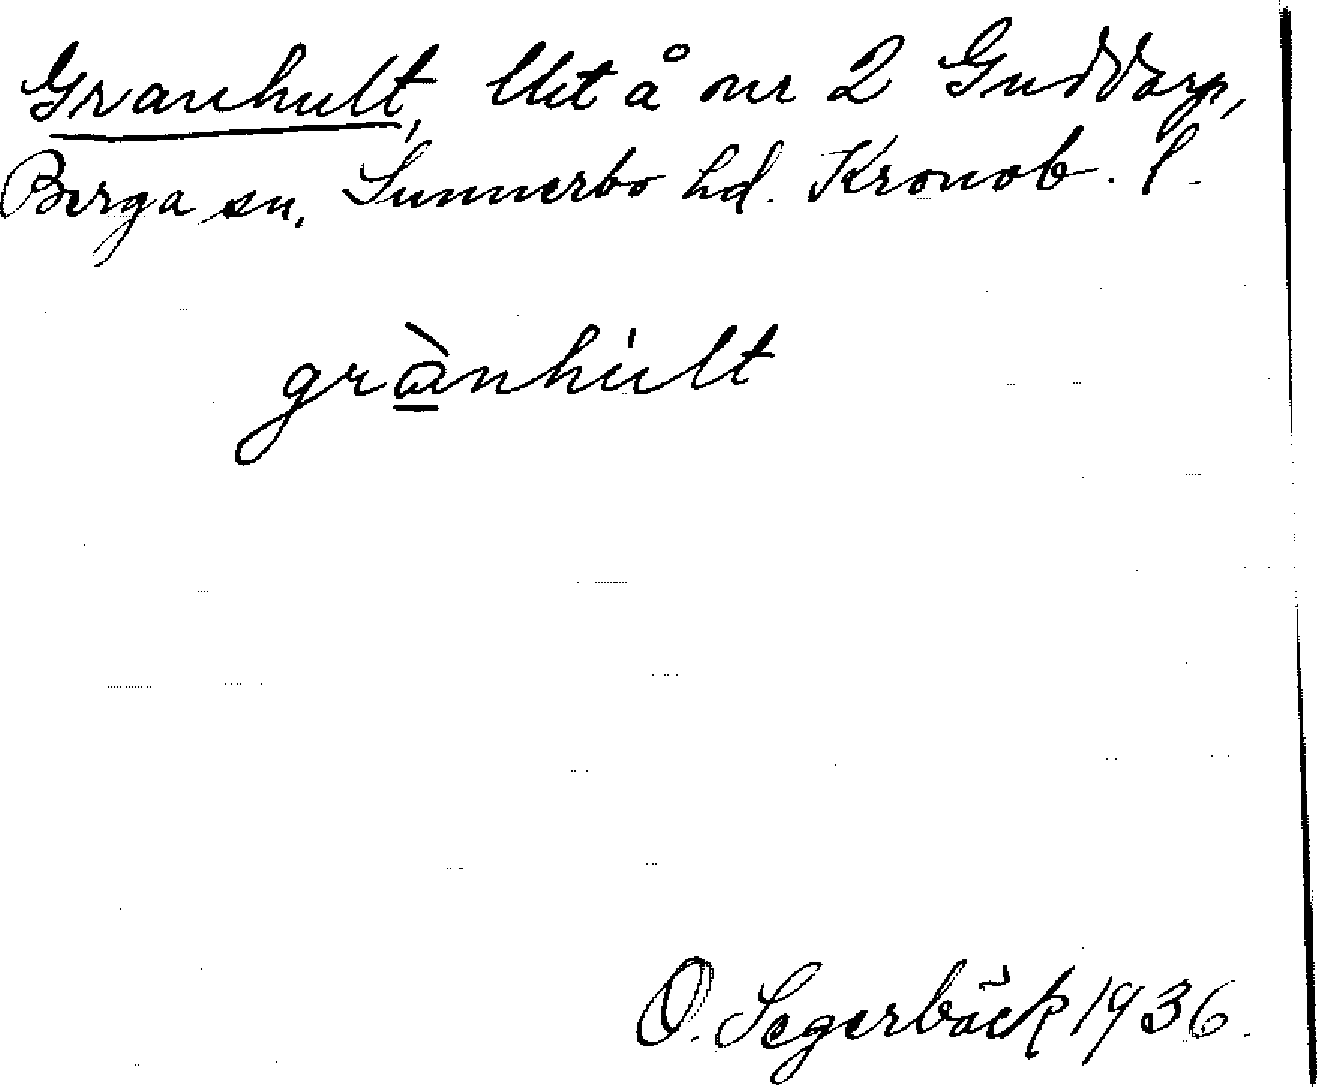 Granhult, Uet å nr 2 Guddarp,
Berga sn, Sunnerbo hd. Kronob. l.
grànhult
O. Segerbäck 1936.